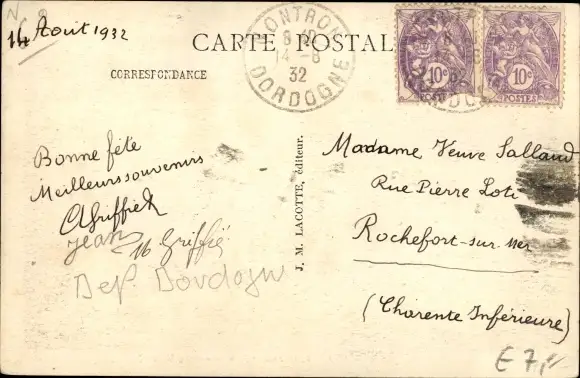 14 Août 1932
CARTE POSTALE
MONTRON
8 H
14 - 8
32
DORDOGNE
10c
POSTES
10c
POSTES
CORRESPONDANCE
Bonne fête
Meilleurs souvenirs
AGriffié
Jean
M Griffié
Dep Dordogne
J. M. LACOTTE, éditeur.
Madame Veuve Salland
Rue Pierre Loti
Rochefort-sur-Mer
(Charente Inférieure)